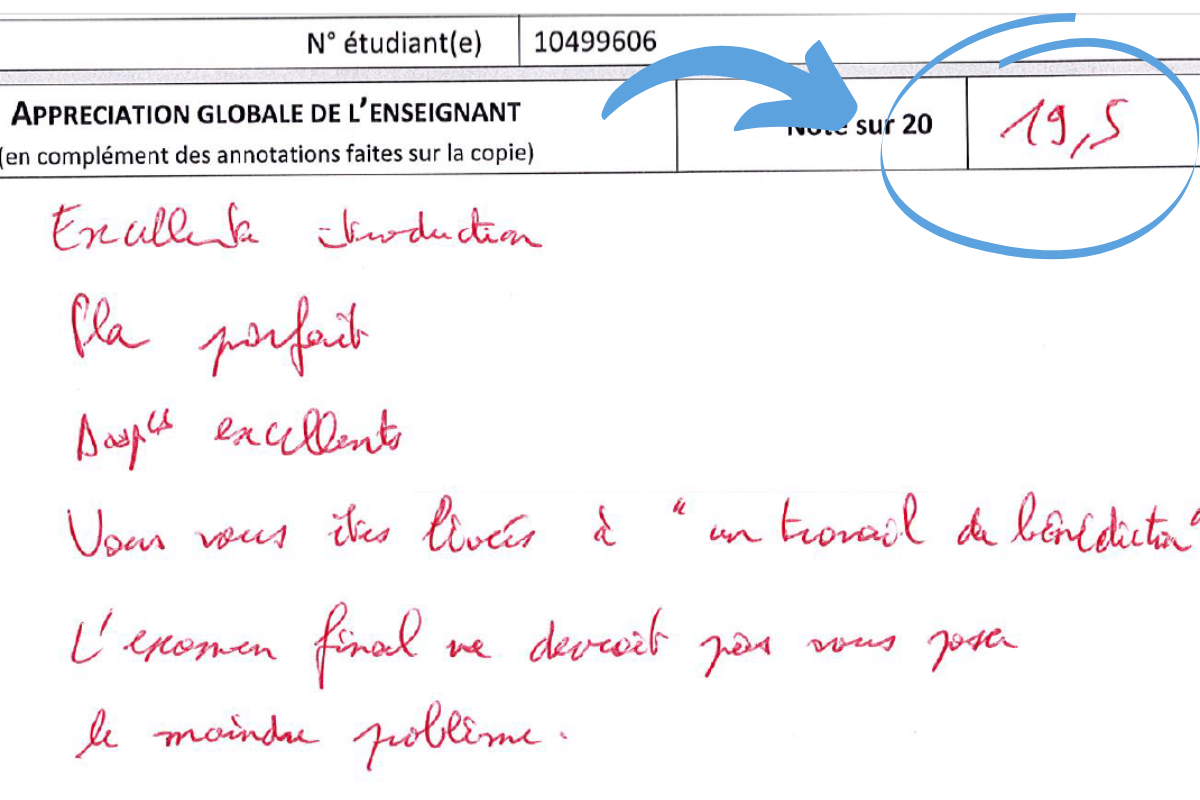 N° étudiant(e) 10499606
APPRECIATION GLOBALE DE L'ENSEIGNANT
(en complément des annotations faites sur la copie)
Note sur 20
19,5
Excellente introduction
Plan parfait
excellents
Vous vous êtes livrés à "un travail de bénédictin"
L'examen final ne devrait pas vous poser
le moindre problème.